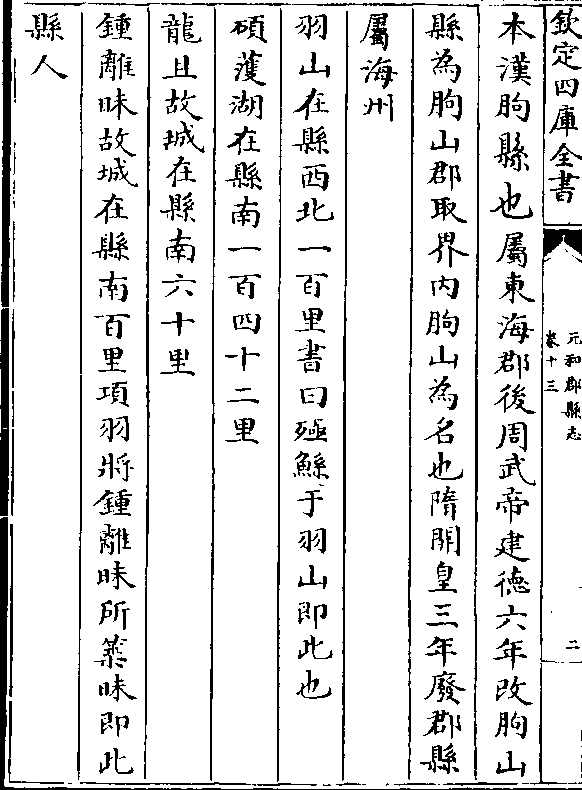 欽定四庫全書
元和郡縣志
卷十三
二
本漢朐縣也屬東海郡後周武帝建德六年改朐山
縣為朐山郡取界内朐山為名也隋開皇三年廢郡縣
屬海州
羽山在縣西北一百里書曰殛鯀于羽山即此也
碩蒦湖在縣南一百四十二里
龍且故城在縣南六十里
鍾離昧故城在縣南百里項羽將鍾離昧所築昧即此
縣人